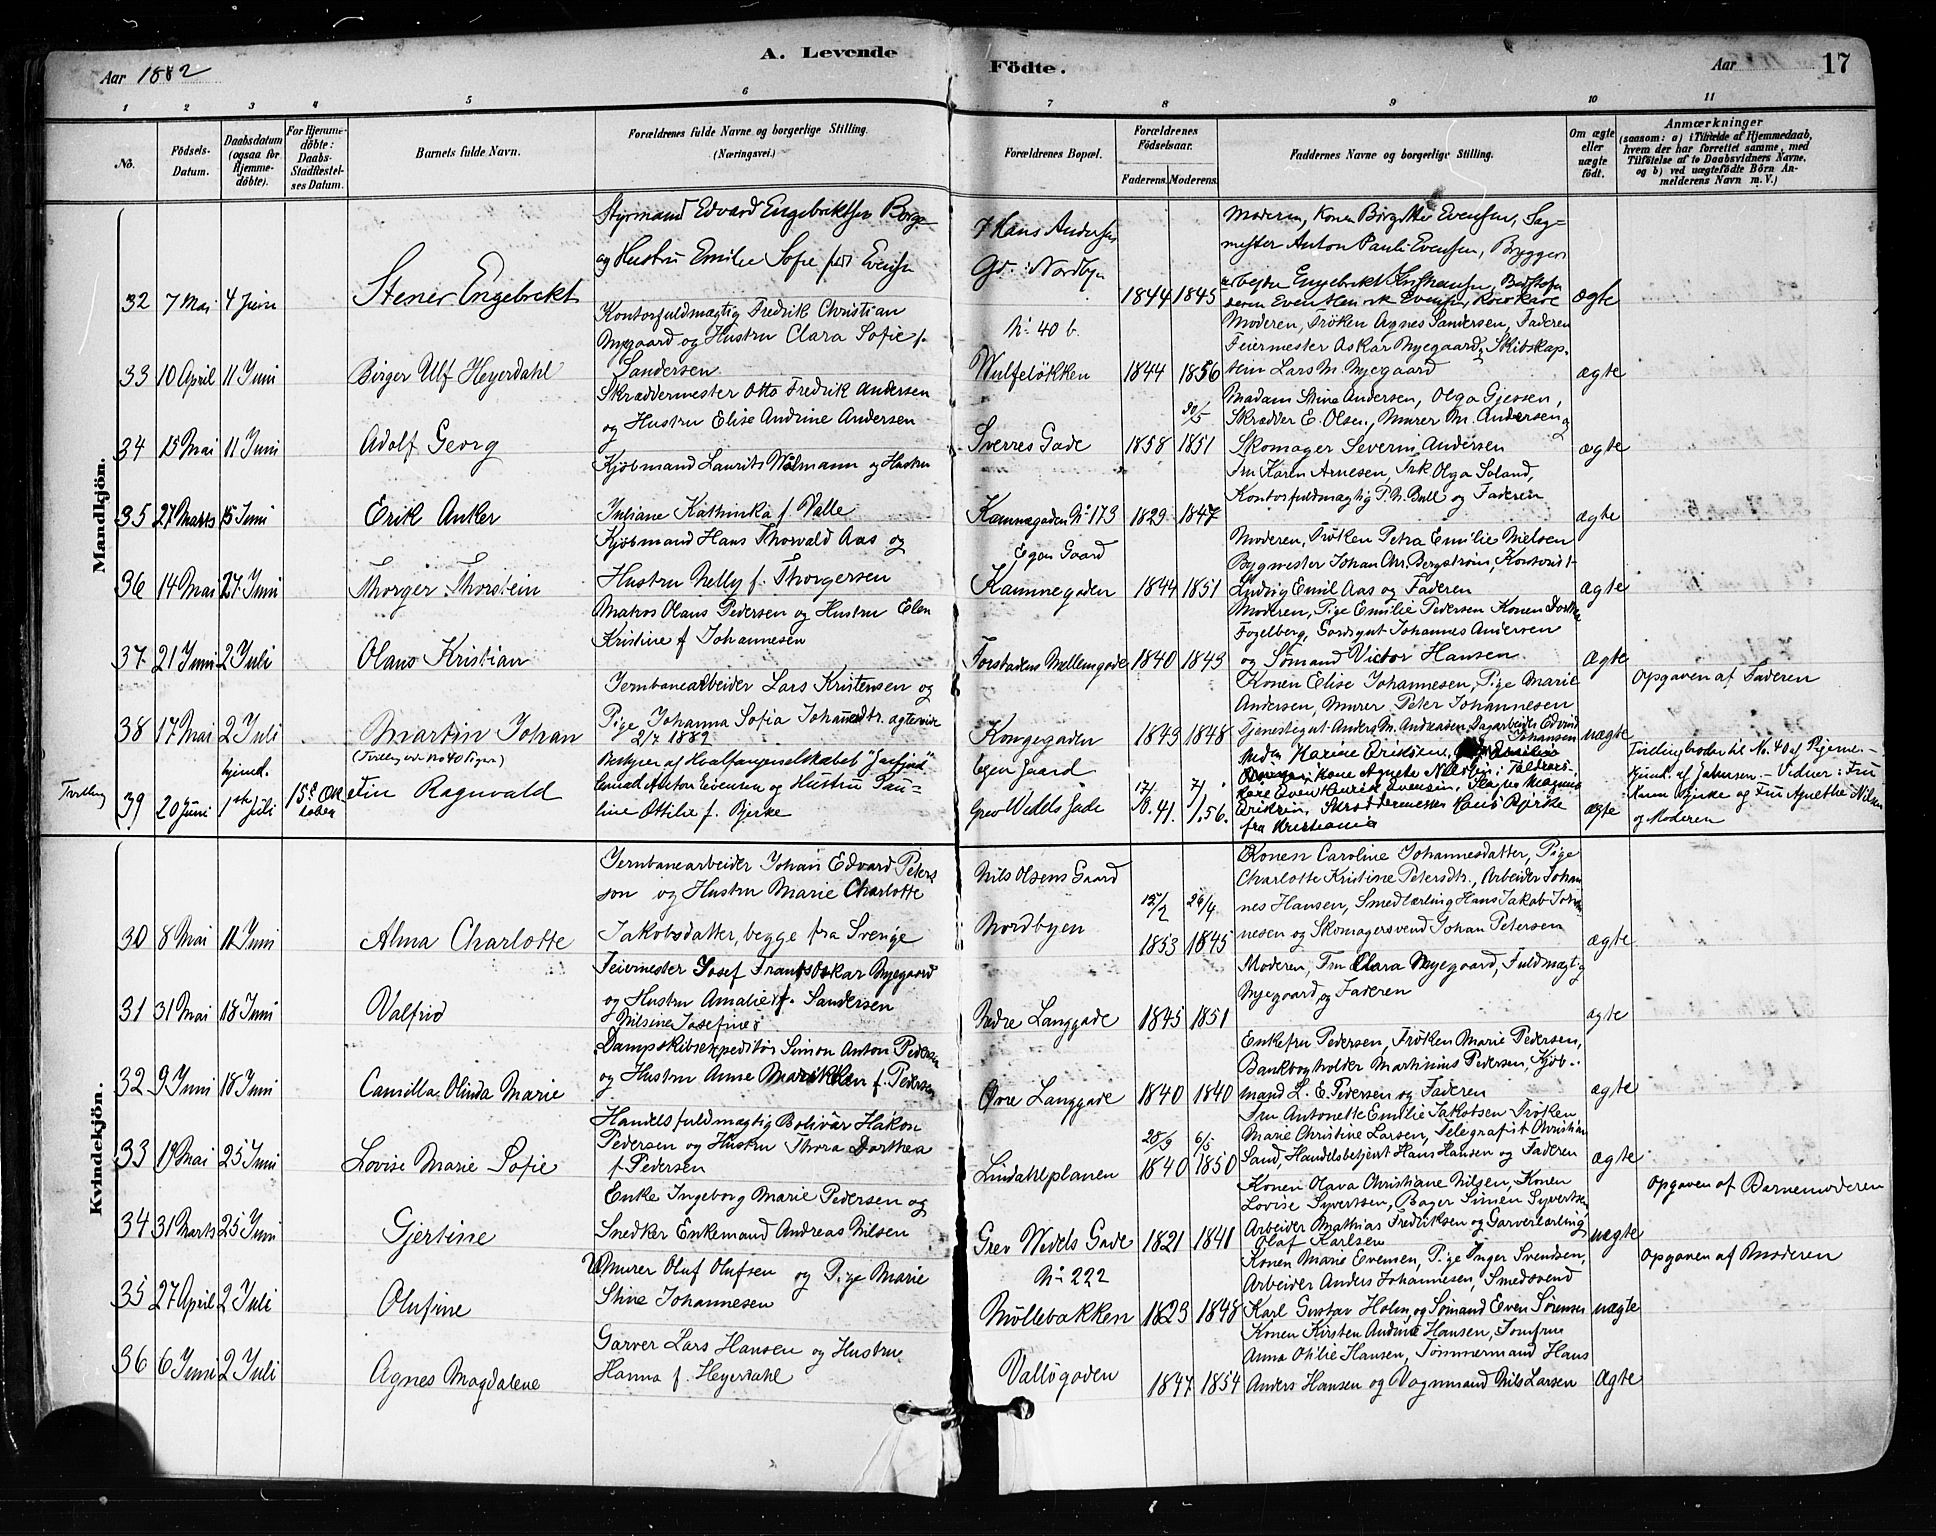 Aar 1882
A. Levende
Födte.
Aar
17
1 2 3 4 5 6 7 8 9 10 11
No.
Födsels-
Datum.
Daabsdatum
(ogsaa for
Hjemme-
döbte).
For Hjemme-
döbte:
Daabs-
Stadfæstel-
ses Datum.
Barnets fulde Navn.
Forældrenes fulde Navne og borgerlige Stilling.
(Næringsvei.)
Forældrenes Bopæl.
Forældrenes
Födselsaar.
Faderens. Moderens.
Faddernes Navne og borgerlige Stilling.
Om ægte
eller
uægte
födt.
Anmærkninger
(saasom: a) i Tilfælde af Hjemmedaab,
hvem der har forrettet samme, med
Tilföielse af to Daabsvidners Navne.
og b) ved uægtefödte Börn An-
melderens Navn m. V.)
Mandkjön.
32 7 Mai 4 Juni
Stener Engebrekt
Styrmand Edvard Engebrektsen Berge
og Hustru Emilie Sofie född Evensen
Hans Andersens
Gd. i Nordbyn
1844 1845
Moderen, Konen Birgitte Evensen, Sag-
mester Anton Pauli Evensen, Bygger
ægte
33 10 April 11 Juni
Birger Ulf Heyerdahl
Kontorfuldmægtig Fredrik Christian
Nyegaard og Hustru Clara Sofie f.
Sandersen
No 40 b.
Wulfeløkken
1844 1856
Moderen, Fröken Agnes Sandersen, Faderen
Feiermester Askar Nyegaard, Skibskap-
tein Lars M. Nyegaard
ægte
34 15 Mai 11 Juni
Adolf Georg
Skræddermester Otto Fredrik Andersen
og Hustru Elise Andrine Andersen
Sverres Gade
1858 30/5 1851
Madam Stine Andersen, Olga Gjessen,
Skrædder E. Olsen, Murer M. Andersen og
Skomager Severin Andersen
ægte
35 27 Marts 15 Juni
Erik Anker
Kjöbmand Laurits Wölmann og Hustru
Juliane Kathinka f. Valle
Kamnegaden No 173
1829 1847
Fru Karen Arnesen, Frk Olga Soland,
Kontorfuldmægtig P. N. Bull og Faderen
ægte
36 14 Mai 27 Juni
Thorger Thorstein
Kjöbmand Hans Thorvald Aas og
Hustru Nelly f. Thorgersen
Egen Gaard
Kamnegaden
1844 1851
Moderen, Fröken Petra Emilie Nielsen
Bygmester Johan Chr. Bergström, Kontorist
Ludvig Emil Aas og Faderen
ægte
37. 21 Juni 2 Juli
Olaus Kristian
Matros Olaus Pedersen og Hustru Elen
Kristine f Johannesen
Forstadens Mellemgade
1840 1843
Moderen, Pige Emilie Pedersen Konen Dorthe
Fogelberg, Gardsgut Johannes Andersen
og Sömand Victor Hansen
ægte
38 17 Mai 2 Juli
Martin Johan
Jernbanearbeider Lars Kristensen og
Pige Johanna Sofia Johannesdtr. ægteviede
2/7 1882
Kongegaden
1843 1848
Konen Elise Johannesen, Pige Marie
Andersen, Murer Peter Johannesen
Tjenestegut Anders M. Andersen, Dagarbeider Edvind
Johansen
uægte
Opgaven af Faderen
Tvilling
39 20 Juni
hjemd.
1ste Juli
15de Ok
tober
(Tvilling ved No 40 Piger)
Fin Ragnvald
Bestyrer af Hvalfangerselskabet "Jarfjord"
Conrad Anton Evensen og Hustru Pau-
line Ottilie f. Bjerke
Egen Gaard
Grev Wedels Gade
fra Kristiania
ægte
Tvillingbroder til No. 40 af Pigerne. -
og Moderen
Kvindekjön.
30 8 Mai 11 Juni
Alma Charlotte
Jernbanearbeider Johan Edvard Peters
son og Hustru Marie Charlotte
Jakobsdatter, begge fra Sverige
Nils Olsens Gaard
Nordbyen
15/2 26/4
1853 1845
Konen Caroline Johannesdatter, Pige
Charlotte Kristine Petersdtr., Arbeider Johan
nes Hansen, Smedlærling Hans Jakob Johan
nesen og Skomagersvend Johan Petersen
ægte
31 31 Mai 18 Juni
Valfrid
Feiermester Josef Frants Oskar Nyegaard
og Hustru Amalie f. Sandersen
Nilsine Josefine
Nedre Langgade
1845 1851
Moderen, Fru Clara Nyegaard, Fuldmægtig
Nyegaard og Faderen
ægte
32 9 Juni 18 Juni
Camilla Olinda Marie
Dampskibsexpeditör Simon Anton Pedersen
og Hustru Anne Marie f. Pedersen
Övre Langgade
1840 1840
Enkefru Pedersen, Fröken Marie Pedersen,
Bankbogholder Martinius Pedersen, Kjöb-
mand L. E. Pedersen og Faderen
ægte
33 19 Mai 25 Juni
Lovise Marie Sofie
Handelsfuldmægtig Bolivar Hakon
Pedersen og Hustru Thora Dorthea
f. Pedersen
Lindahlplanen
28/9 6/5
1840 1850
Fru Antonette Emilie Jakobsen Fröken
Marie Christine Larsen, Telegrafist Christian
Sand, Handelsbetjent Hans Hansen og Faderen
ægte
34 31 Marts 25 Juni
Gjertine
Enke Ingeborg Marie Pedersen og
Snedker Enkemand Andreas Nilsen
Grev Wedels Gade
1821 1841
Konen Olava Christiane Nilsen, Konen
Lovise Syvertsen, Bager Simen Syvertsen
Arbeider Mathias Fredriksen og Garverlærling
Olaf Karlsen
uægte
Opgaven af Barnemoderen
35 27 April 2 Juli
Olufine
Murer Oluf Olufsen og Pige Marie
Stine Johannesen
No 222
Möllebakken
1823 1848
Konen Marie Evensen, Pige Inger Svendsen,
Arbeider Anders Johannesen, Smedsvend
Karl Gustav Holm og Sömand Even Sörensen
uægte
Opgaven af Moderen
36 6 Juni 2 Juli
Agnes Magdalene
Garver Lars Hansen og Hustru
Hanna f. Heyerdahl
Vallögaden
1847 1854
Konen Kirsten Andrine Hansen, Jomfru
Anna Otilie Hansen, Tömmermand Hans
Anders Hansen og Vognmand Nils Larsen
ægte